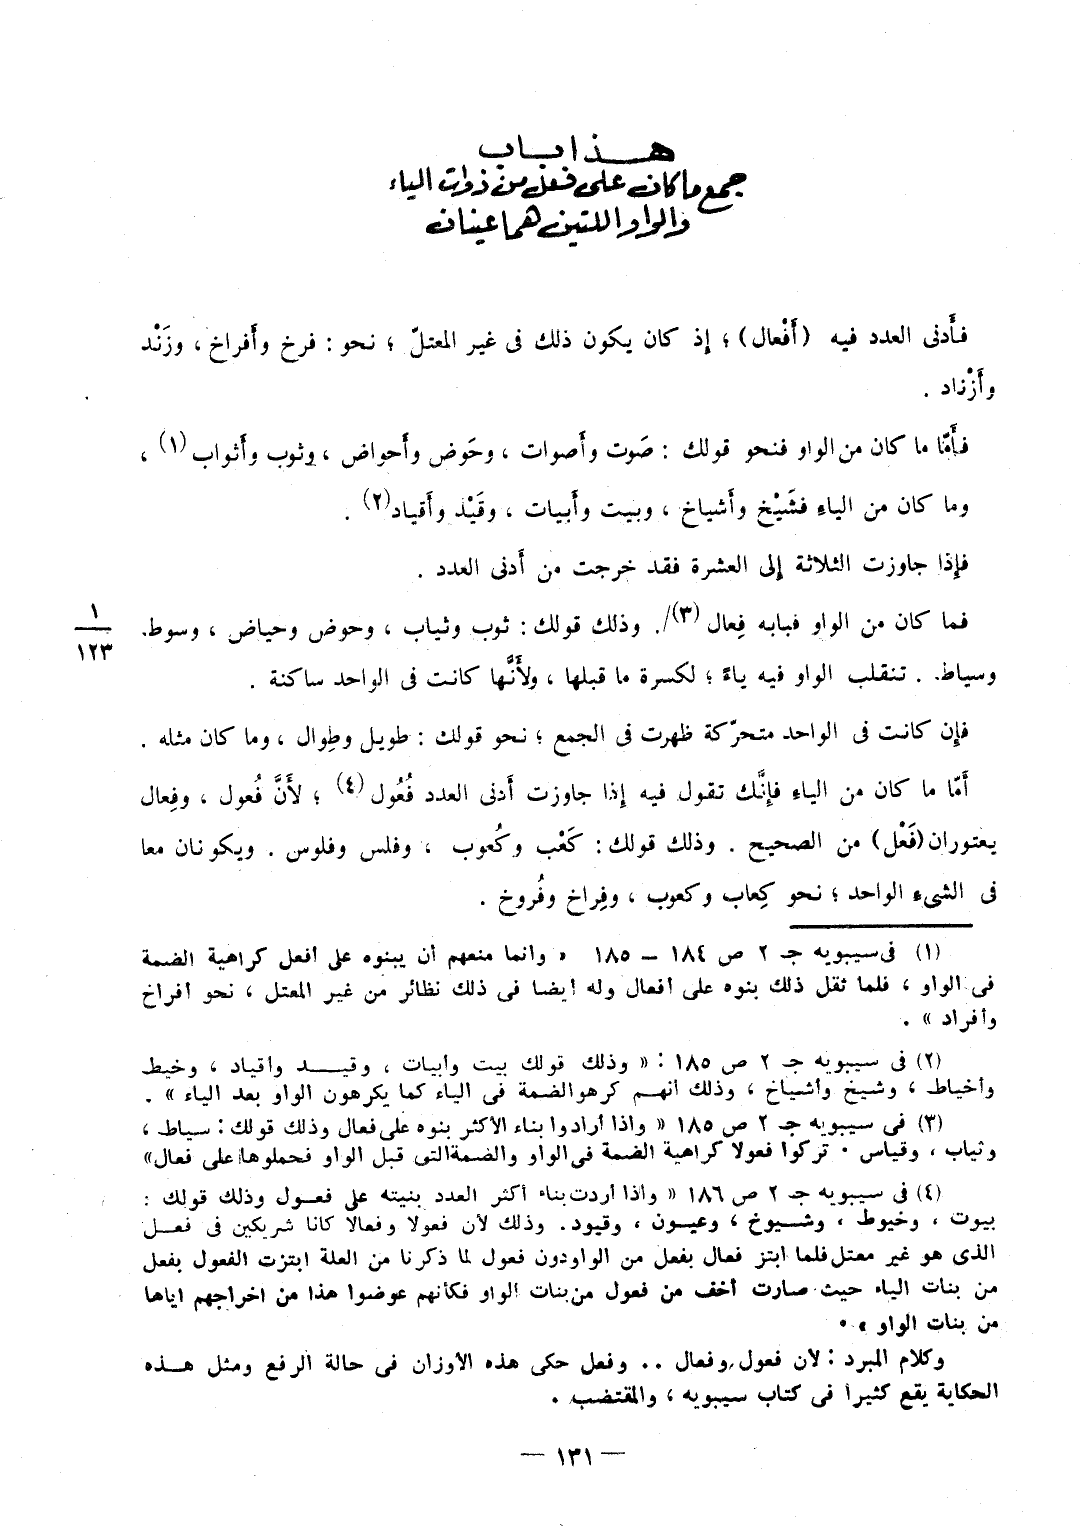 هذا باب
جمع ما كان على فعل من ذوات الياء
والواو اللتين هما عينان
فأَدنى العدد فيه (أَفْعال) ؛ إذ كان يكون ذلك فى غير المعتلّ ؛ نحو : فرخ وأَفراخ ، وزَنْد
وأَزْناد .
فأَمّا ما كان من الواو فنحو قولك : صَوت وأَصوات ، وحَوض وأَحواض ، وثوب وأَثواب (١) ،
وما كان من الياءِ فشَيْخ وأَشياخ ، وبيت وأَبيات ، وقَيْد وأَقياد(٢) .
فإِذا جاوزت الثلاثة إلى العشرة فقد خرجت من أَدنى العدد .
فما كان من الواو فبابه فِعال (٣)/. وذلك قولك : ثوب وثياب ، وحوض وحياض ، وسوط
١
١٢٣
وسياط . تنقلب الواو فيه ياءً ؛ لكسرة ما قبلها ، ولأَنَّها كانت فى الواحد ساكنة .
فإِن كانت فى الواحد متحرّكة ظهرت فى الجمع ؛ نحو قولك : طويل وطِوال ، وما كان مثله .
أَمّا ما كان من الياءِ فإِنَّك تقول فيه إذا جاوزت أَدنى العدد فُعُول (٤) ؛ لأَنَّ فُعول ، وفِعال
يعتوران (فَعْل) من الصحيح . وذلك قولك : كَعْب وكُعوب ، وفلس وفلوس . ويكونان معا
فى الشىءِ الواحد ؛ نحو كِعاب وكعوب ، وفِراخ وفُروخ .
(١) فى سيبويه جـ ٢ ص ١٨٤ – ١٨٥ « وانما منعهم أن يبنوه على أفعل كراهية الضمة
فى الواو ، فلما ثقل ذلك بنوه على أفعال وله أيضا فى ذلك نظائر من غير المعتل ، نحو أفراخ
وأفراد » .
(٢) فى سيبويه جـ ٢ ص ١٨٥ : « وذلك قولك بيت وأبيات ، وقيد وأقياد ، وخيط
وأخياط ، وشيخ وأشياخ ، وذلك أنهم كرهوا الضمة فى الياء كما يكرهون الواو بعد الياء » .
(٣) فى سيبويه جـ ٢ ص ١٨٥ « واذا أرادوا بناء الأكثر بنوه على فعال وذلك قولك : سياط ،
وثياب ، وقياس . تركوا فعولا كراهية الضمة فى الواو والضمة التى قبل الواو فحملوها على فعال»
(٤) فى سيبويه جـ ٢ ص ١٨٦ « واذا أردت بناء أكثر العدد بنيته على فعول وذلك قولك :
بيوت ، وخيوط ، وشيوخ ، وعيون ، وقيود . وذلك لأن فعولا وفعالا كانا شريكين فى فعل
الذى هو غير معتل فلما ابتز فعال بفعل من الواو دون فعول لما ذكرنا من العلة ابتزت الفعول بفعل
من بنات الياء حيث صارت أخف من فعول من بنات الواو فكأنهم عوضوا هذا من اخراجهم اياها
من بنات الواو » .
وكلام المبرد : لأن فعول وفعال .. وفعل حكى هذه الأوزان فى حالة الرفع ومثل هذه
الحكاية يقع كثيرا فى كتاب سيبويه ، والمقتضب .
— ١٣١ —